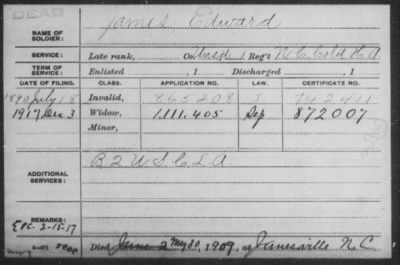 DEAD
NAME OF SOLDIER: James, Edward
SERVICE: Late rank, Co. Unasd 1 Reg't N.C. Cold H A
TERM OF SERVICE: Enlisted , 1 Discharged , 1
DATE OF FILING. CLASS. APPLICATION NO. LAW. CERTIFICATE NO.
1890 July 18 Invalid, 865208 742411
1917 Dec 3 Widow, 1.111.405 Sep 872007
Minor,
ADDITIONAL SERVICES: B 2 U S C L A
REMARKS:
2-15-17
Died June 2 May 30, 1909, at Jamesville N.C.